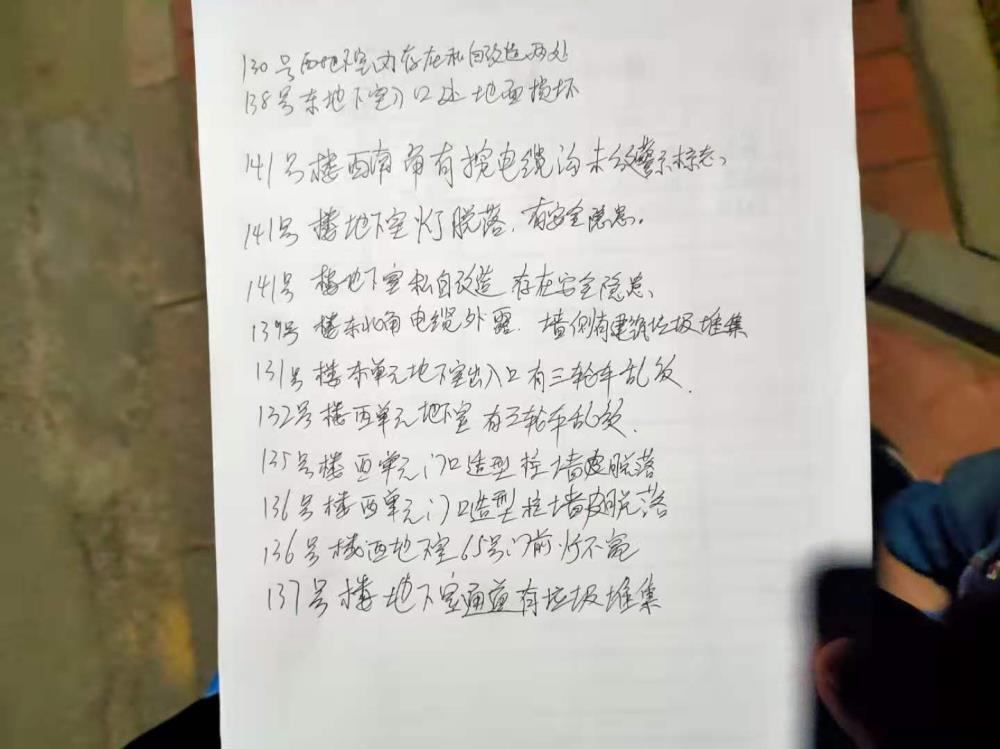 130号西地下室内存在私自改造两处
138号东地下室入口处地面损坏
141号楼西南角有挖电缆沟未设警示标志、
141号 楼地下室灯脱落.有安全隐患。
141号 楼地下室私自改造 存在安全隐患、
139号 楼东北角电缆外露.墙侧有建筑垃圾堆集
131号楼东单元地下室出入口有三轮车乱放.
132号楼西单元地下室有三轮车乱放.
135号楼西单元门口造型柱墙皮脱落
136号楼西单元门口造型柱墙皮脱落
136号楼西地下室65号门前灯不亮
137号楼地下室通道有垃圾堆集